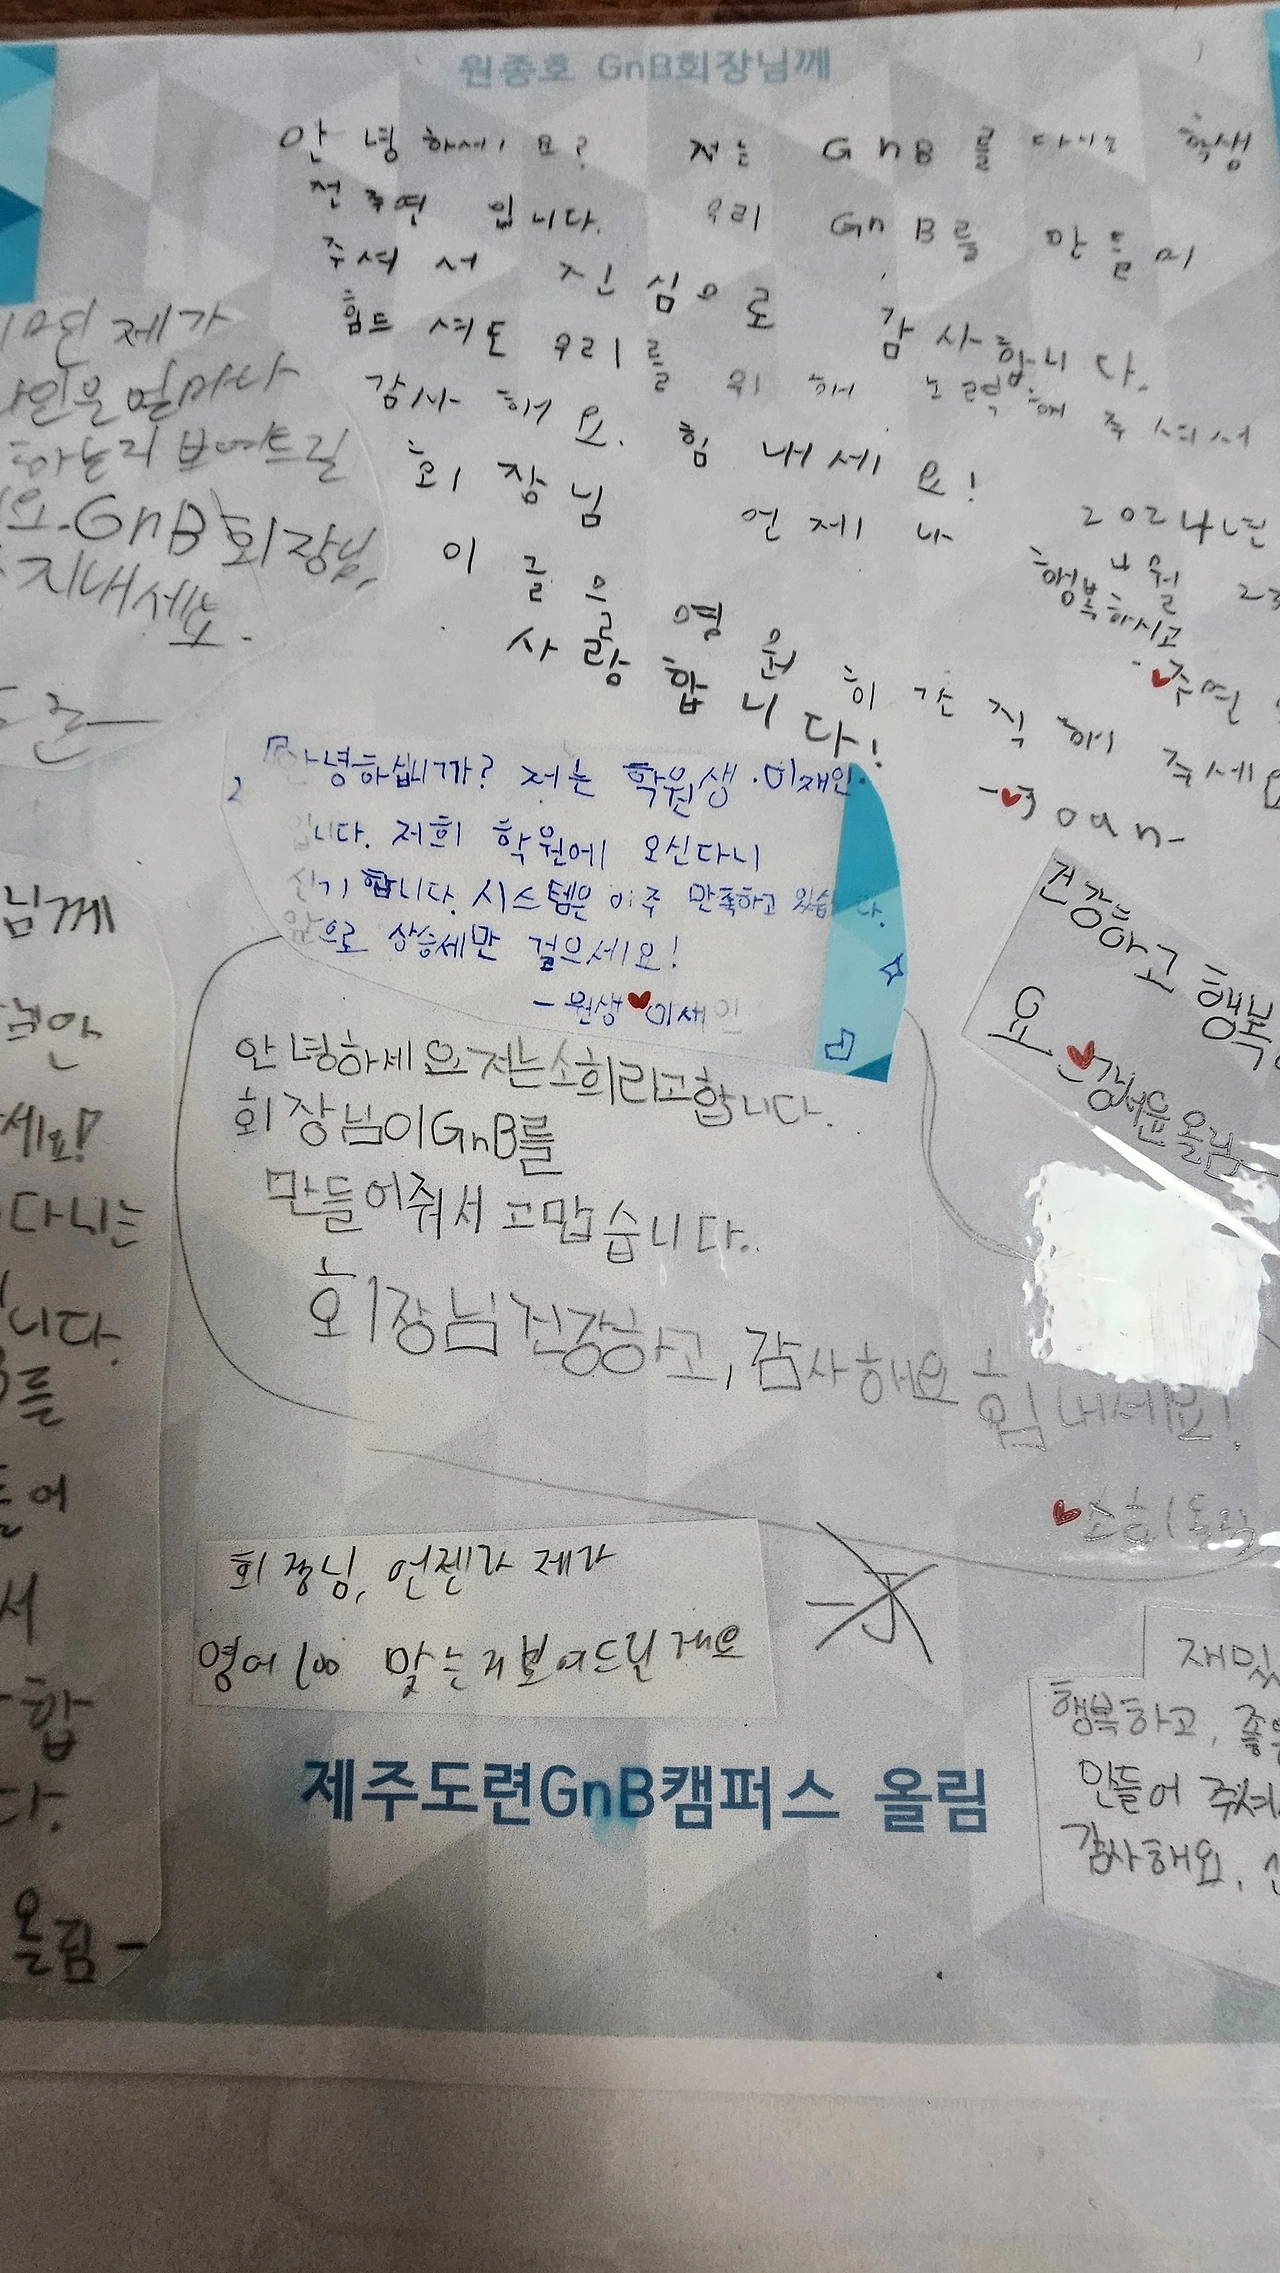 원종호 GnB회장님께
안녕하세요? 저는 GnB를 다니는 학생
전주연 입니다. 우리 GnB를 만들어
주셔서 진심으로 감사합니다.
힘드셔도 우리를 위해 노력해주셔서
감사해요. 힘내세요!
회장님 언제나 행복하시고
이 글을 영원히 간직해 주세요
사랑합니다!
2024년
4월 23
주연
-♥Joan-
제가
얼마나
하는지 보여드릴
요. GnB회장님,
지내세요.
안녕하십니까? 저는 학원생·이재인·
입니다. 저희 학원에 오신다니
신기합니다. 시스템은 아주 만족하고 있습니다.
앞으로 상승세만 걸으세요!
-원생♥이재인
건강하고 행복
요
-♥강서윤 올림-
님께
세요!
다니는
니다.
를
들어
서
합
다.
올림-
안녕하세요 저는 소희라고합니다.
회장님이GnB를
만들어줘서 고맙습니다.
회장님 건강하고, 감사해요 힘내세요!
♥소희 올림
회장님, 언젠가 제가
영어 100 맞는지 보여드릴게요
재밌
행복하고,
만들어 주셔서
감사해요.
제주도련GnB캠퍼스 올림